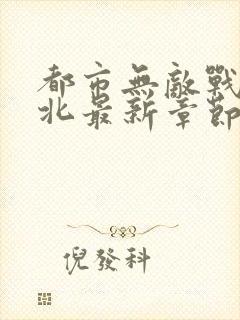 都市無敵戰
北最新章節
倪發科